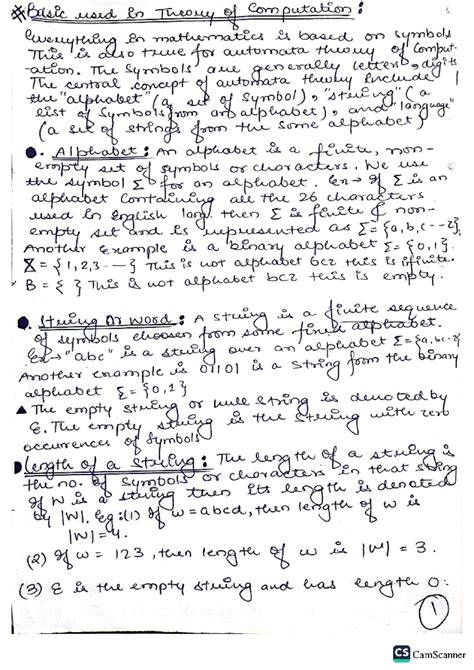 *Basic used in Theory of Computation:
Everything in mathematics is based on symbols
This is also true for automata theory of Comput-
ation. The Symbols are generally letters, digits
The central concept of automata theory include
the "alphabet" (a set of symbol), "string" (a
list of symbols from an alphabet), and "language"
(a set of strings from the same alphabet)
●. Alphabet: An alphabet is a finite, non-
empty set of symbols or characters. We use
the symbol Σ for an alphabet. Ex→ If Σ is an
alphabet containing all the 26 characters
used in English lang. then Σ is finite & non-
empty set and is represented as Σ={a,b,c--z}.
Another Example is a binary alphabet Σ={0,1}.
X = {1,2,3----} This is not alphabet bcz this is infinite.
B = { } This is not alphabet bcz this is empty.
●. String Or Word: A string is a finite sequence
of symbols choosen from some finite alphabet.
Ex→ "abc" is a string over an alphabet Σ={a,b,c-z}
Another example is 01101 is a String from the binary
alphabet Σ={0,1}
▲ The empty string or null string is denoted by
ε. The empty string is the string with zero
occurences of symbols
Length of a String: The length of a string is
the no. of symbols or characters in that string
If W is a string then its length is denoted
by |W|. Eg:(1) If w=abcd, then length of w is
|W|=4.
(2) If w = 123, then length of w is |W| = 3.
(3) ε is the empty string and has length 0.
1
CS CamScanner